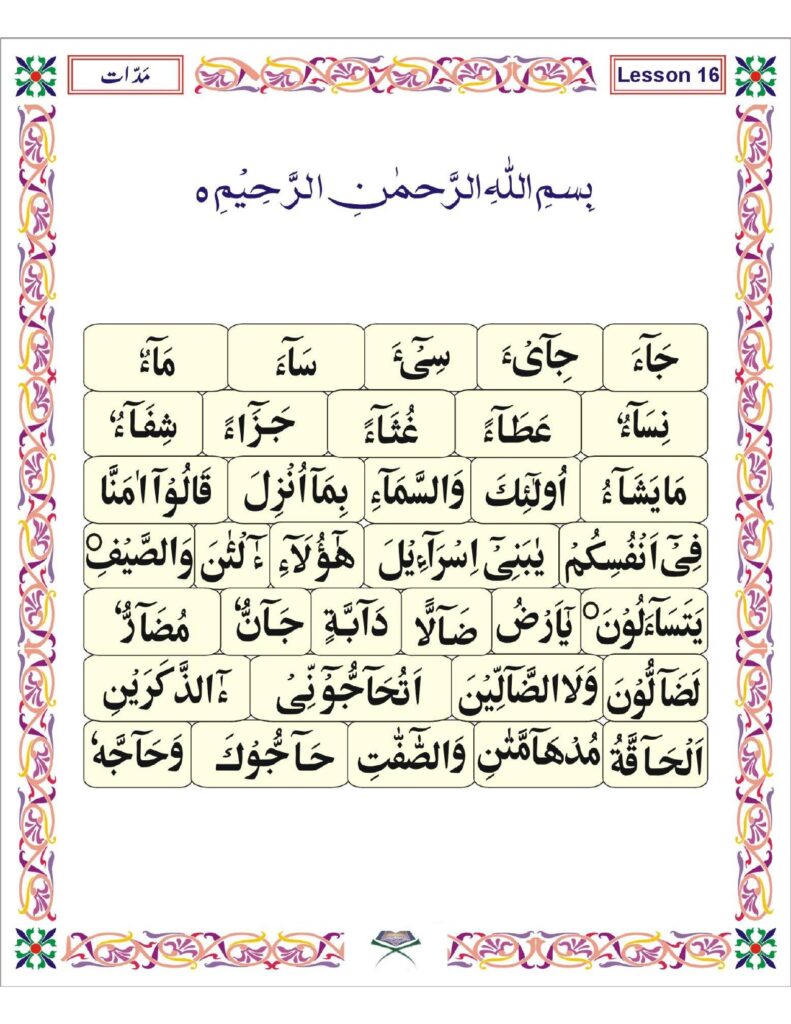 مَدّات
Lesson 16
بِسمِ اللهِ الرَّحمٰنِ الرَّحِیْمِ ہ
جَآءَ جِایْٓءَ سِیْٓءَ سَآءَ مَآءٌ
نِسَآءٌ عَطَآءً غُثَآءً جَزَّاءً شِفَآءٌ
مَا یَشَآءُ اُولٰٓئِكَ وَالسَّمَآءِ بِمَآ اُنْزِلَ قَالُوْٓا اٰمَنَّا
فِیْٓ اَنْفُسِكُمْ یٰبَنِیْٓ اِسْرَآءِیْلَ هٰٓؤُلَآءِ ءٰٓلْئٰنَ وَالصَّیْفِ○
یَتَسَآءَلُوْنَ○ یٰٓاَرْضُ ضَآلًّا دَآبَّةٍ جَآنٌّ مُضَآرٌّ
لَضَآلُّوْنَ وَلَا الضَّآلِّیْنَ اَتُحَآجُّوْٓنِّیْ ءٰٓالذَّكَرَیْنِ
اَلْحَآقَّةُ مُدْهَآمَّتٰنِ وَالصّٰٓفّٰتِ حَآجُّوْكَ وَحَآجَّهٗ